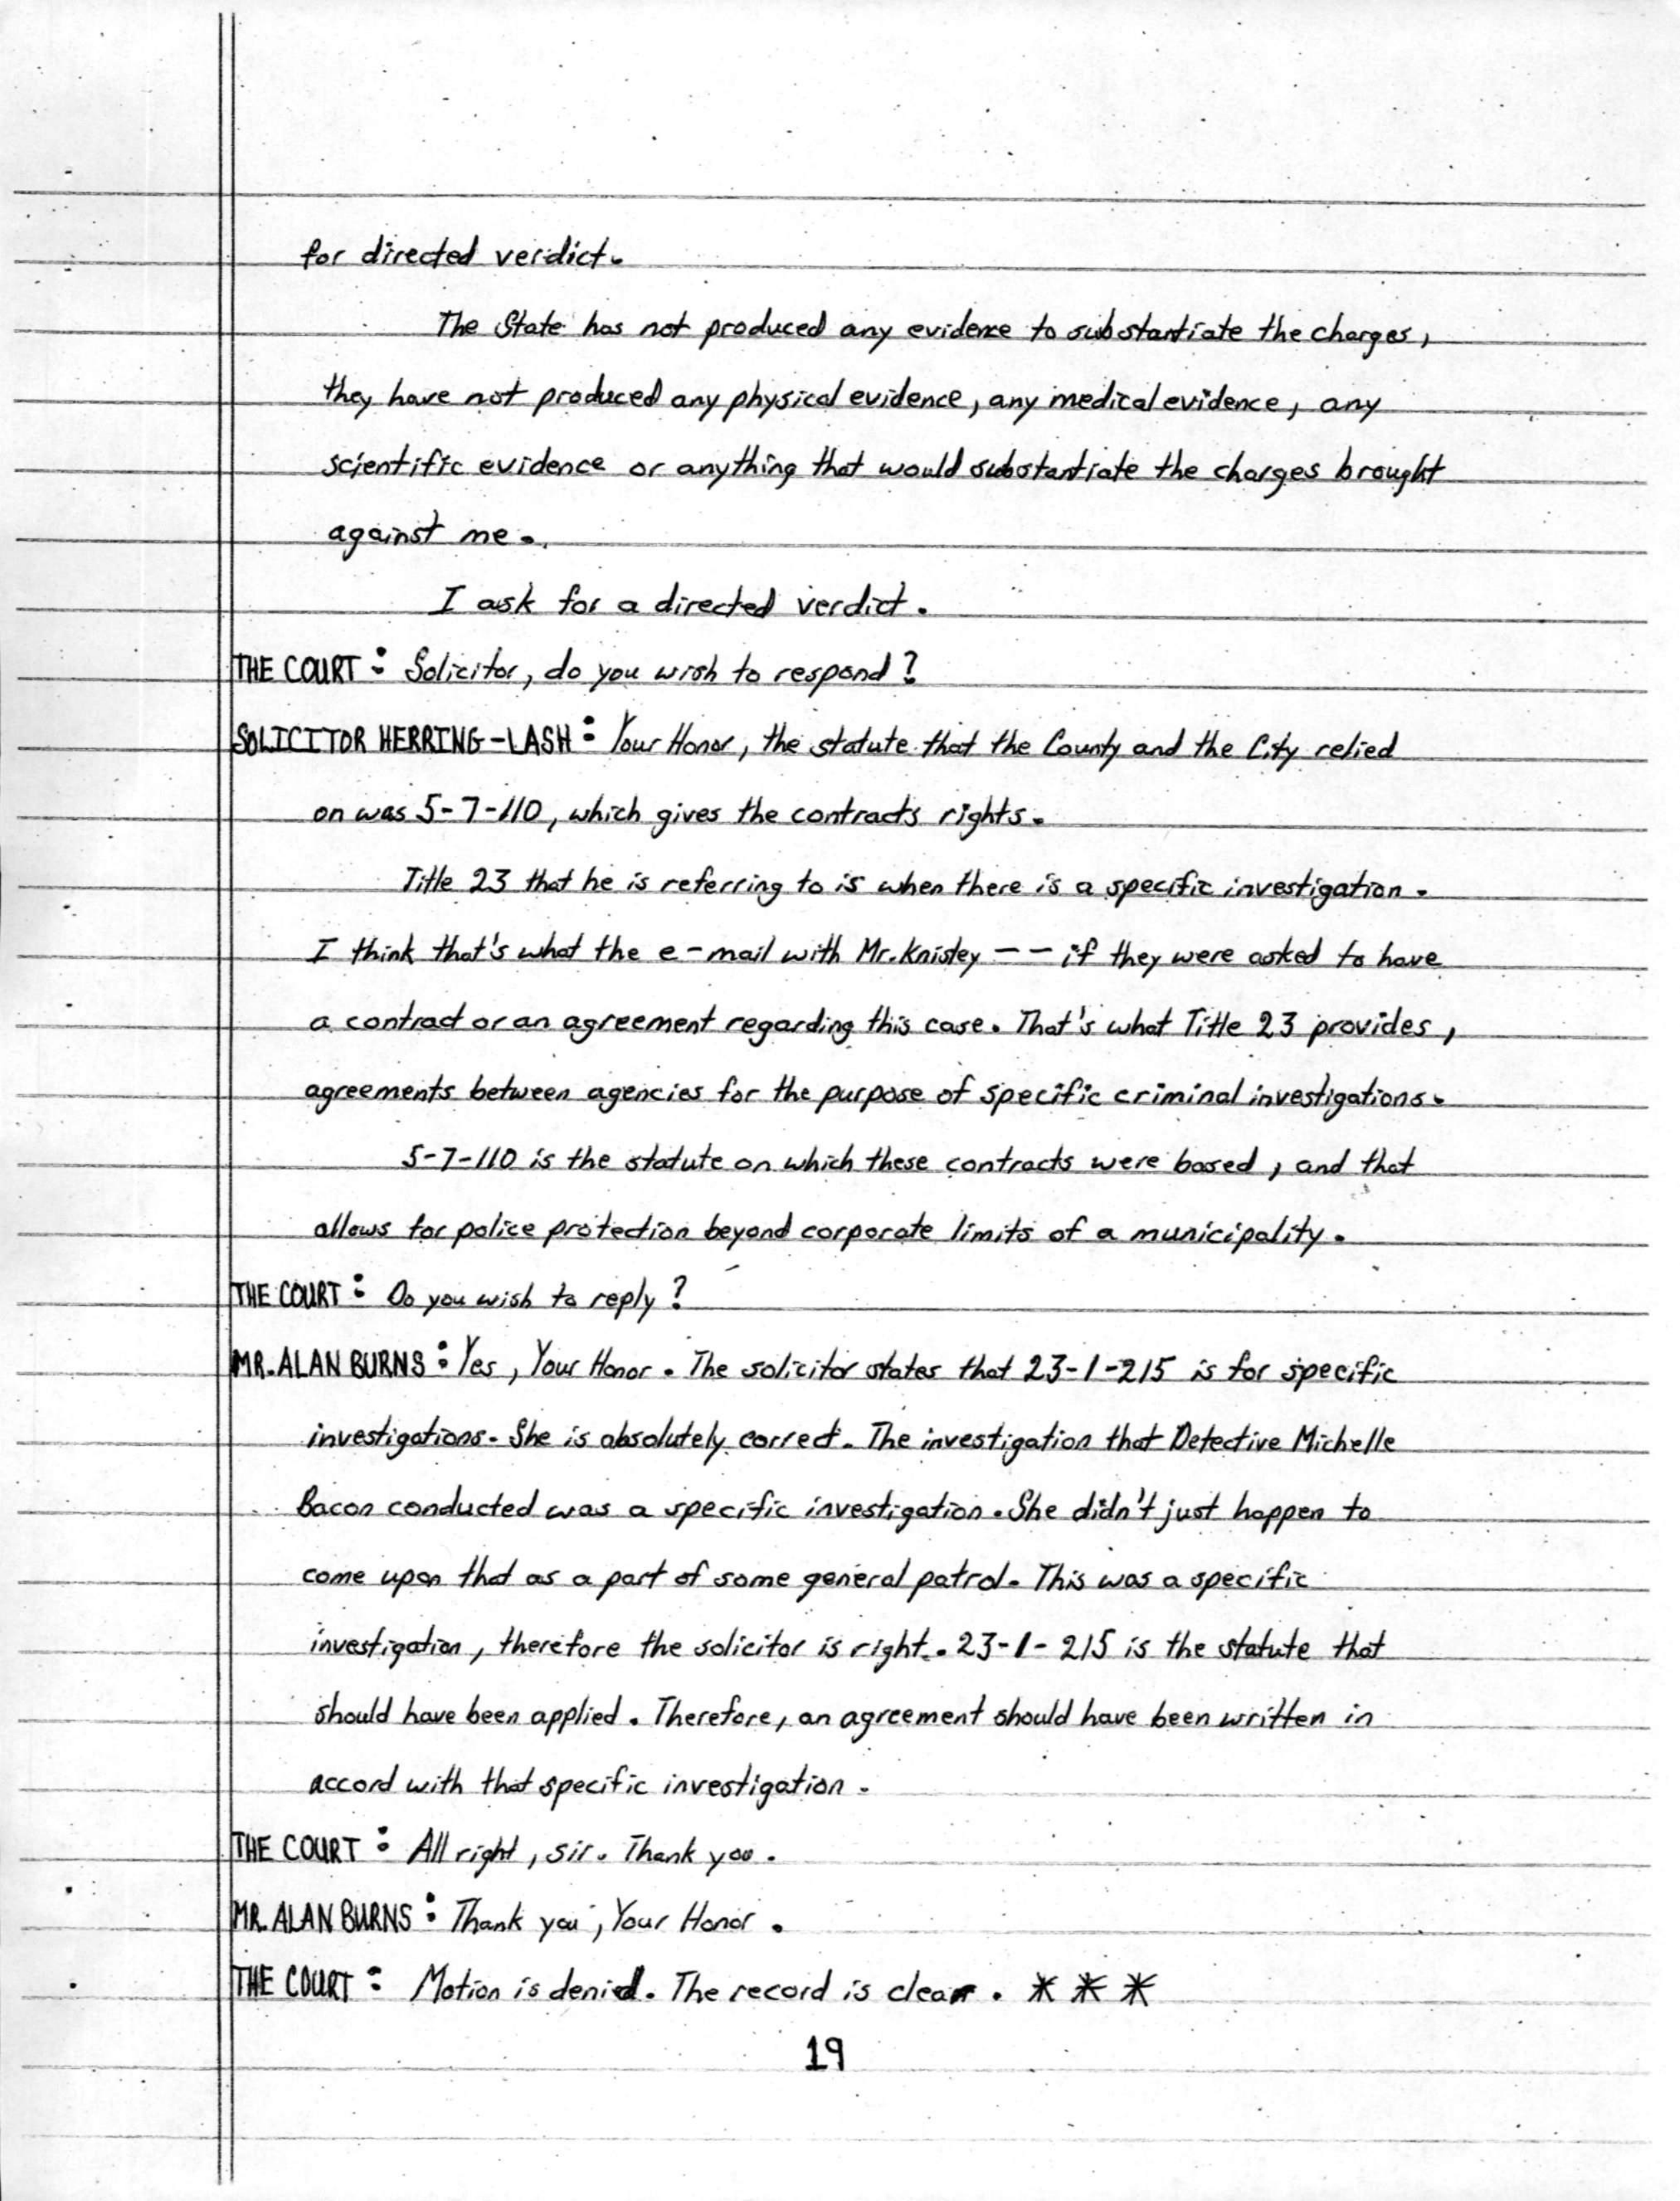 for directed verdict.
The State has not produced any evidence to substantiate the charges,
they have not produced any physical evidence, any medical evidence, any
scientific evidence or anything that would substantiate the charges brought
against me.
I ask for a directed verdict.
THE COURT: Solicitor, do you wish to respond?
SOLICITOR HERRING-LASH: Your Honor, the statute that the County and the City relied
on was 5-7-110, which gives the contracts rights.
Title 23 that he is referring to is when there is a specific investigation.
I think that's what the e-mail with Mr. Knisley -- if they were asked to have
a contract or an agreement regarding this case. That's what Title 23 provides,
agreements between agencies for the purpose of specific criminal investigations.
5-7-110 is the statute on which these contracts were based, and that
allows for police protection beyond corporate limits of a municipality.
THE COURT: Do you wish to reply?
MR. ALAN BURNS: Yes, Your Honor. The solicitor states that 23-1-215 is for specific
investigations. She is absolutely correct. The investigation that Detective Michelle
Bacon conducted was a specific investigation. She didn't just happen to
come upon that as a part of some general patrol. This was a specific
investigation, therefore the solicitor is right. 23-1-215 is the statute that
should have been applied. Therefore, an agreement should have been written in
accord with that specific investigation.
THE COURT: All right, sir. Thank you.
MR. ALAN BURNS: Thank you, Your Honor.
THE COURT: Motion is denied. The record is clear. * * *
19